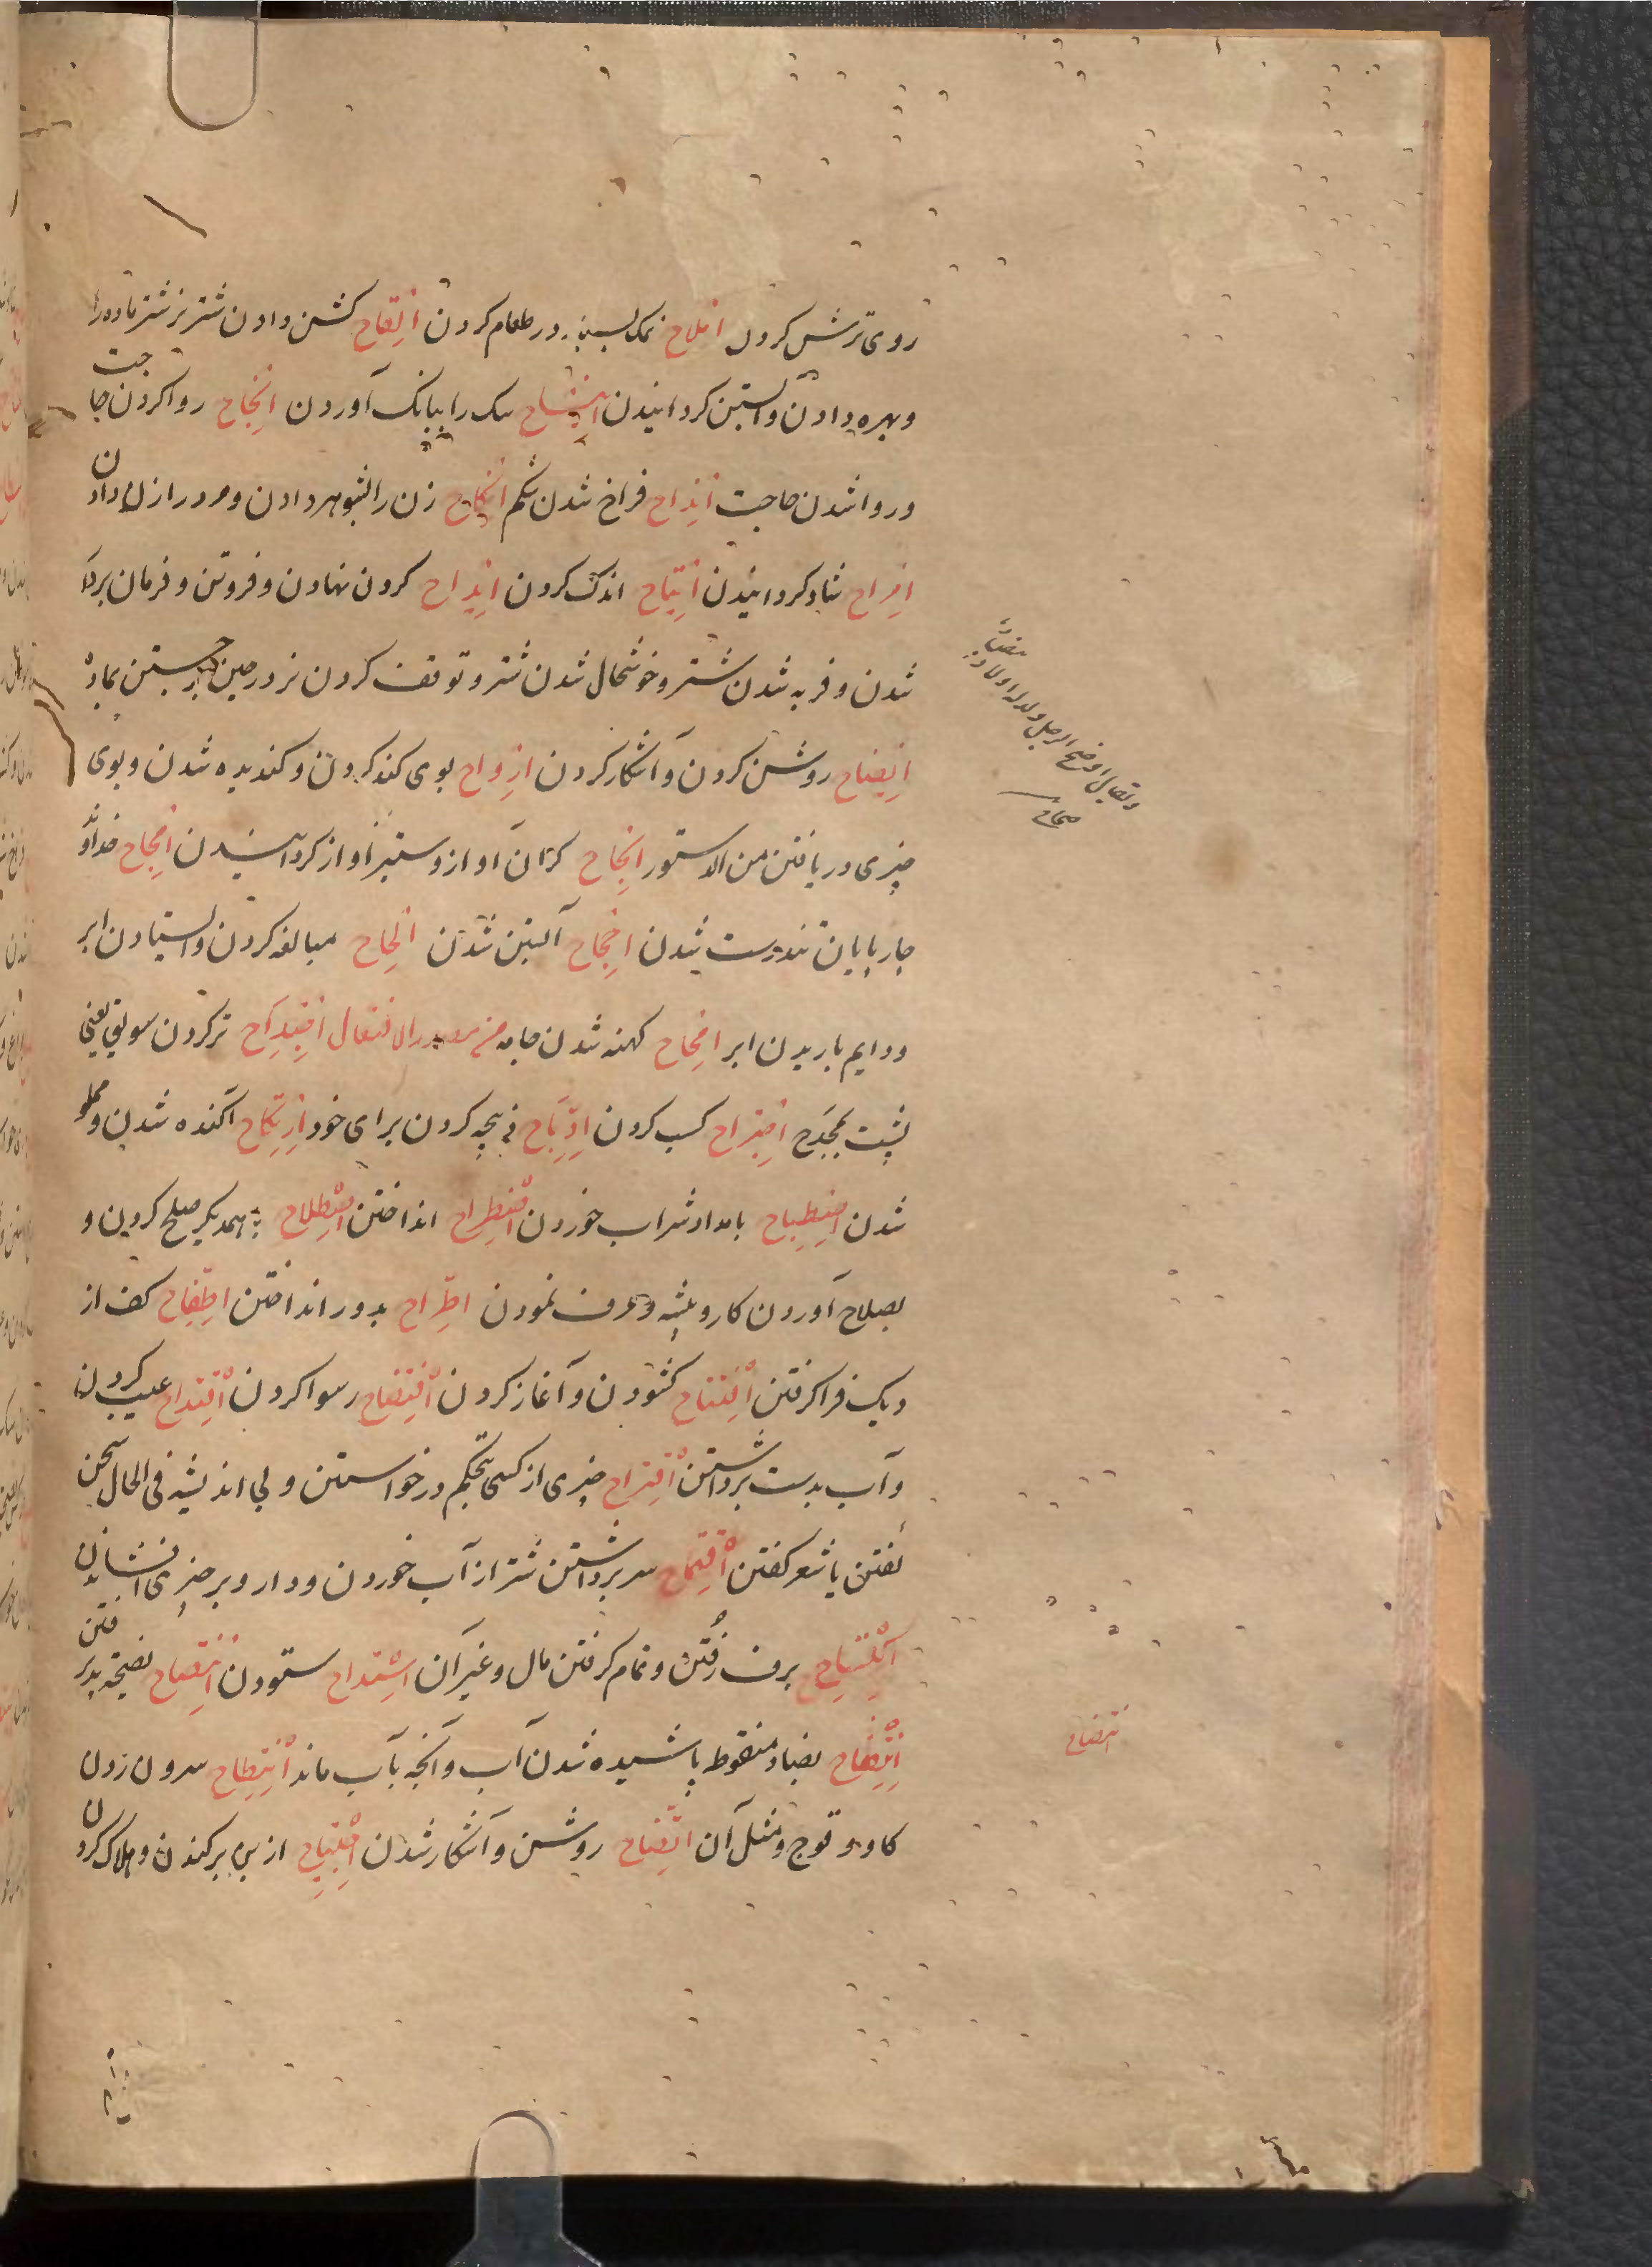 روی ترش کردن املاح نمک بسیار در طعام کردن القاح کشن دادن شتر نر شتر ماده را
و بهره دادن و آبستن کردانیدن سک را ببانک آوردن انجاح روا کردن حاجت
و روا شدن حاجت انداح فراخ شدن شکم انکاح زن را بشوهر دادن و مرد را زن دادن
افراح شاد کردانیدن اندک کردن کردن نهادن و فروتن و فرمان بردار
شدن و فربه شدن شتر و خوشحال شدن شتر و توقف کردن نر در حین برجستن بماده
ایضاح روشن کردن و آشکار کردن ارواح بوی کند کردن و کندیده شدن و بوی
چیزی دریافتن من الاستور کران آواز و ستبر آواز کردانیدن خداوند
چارپایان تندرست شدن آبستن شدن الحاح مبالغه کردن و ایستادن ابر
و دایم باریدن ابر امحاح کهنه شدن جامه من مصدر الافتعال اجتداح تر کردن سویق یعنی
پست بمجدح اجتراح کسب کردن اذباح ذبیحه کردن برای خود ارتکاح آکنده شدن و مملو
شدن اصطباح بامداد شراب خوردن اضطراح انداختن اصطلاح با همدیکر صلح کردن و
بصلاح آوردن کار و پیشه و عرف نمودن اطراح بدور انداختن اطفاح کف از
دیک فرا کرفتن افتتاح کشودن و آغاز کردن افتضاح رسوا کردن اقتداح عیب کردن
و آب بدست برداشتن اقتراح چیزی از کسی بتحکم درخواستن و بی اندیشه فی الحال سخن
کفتن یا شعر کفتن اقتماح سر برداشتن شتر از آب خوردن و دارو بر چیزی افشاندن
اکتساح برف رُفتن و تمام کرفتن مال و غیر آن امتداح ستودن انتصاح نصیحة پذیرفتن
انتضاح بضاد منقوط پاشیده شدن آب و آنچه بآب ماند انتطاح سرون زدن
کاو و قوج و مثل آن اتضاح روشن و آشکار شدن اجتیاح از بن برکندن و هلاک کردن
و یقال افرخ الرجل ولد له اولاد
صحاح
انتضاح